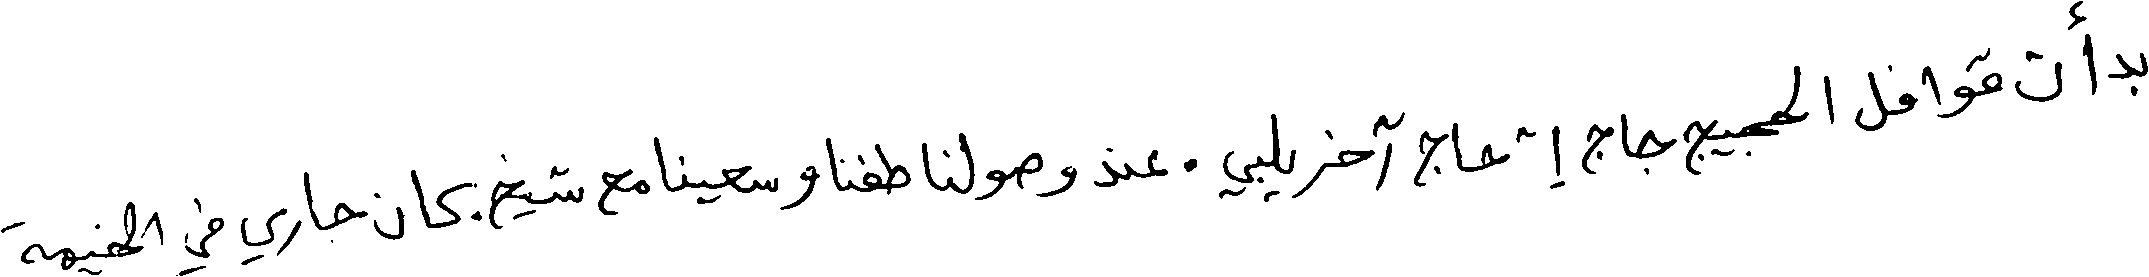 بدأت قوافل الحجيج حاج إثر حاج آخر يلبي. عند وصولنا طفنا وسعينا مع شيخ. كان جاري في الخيمة